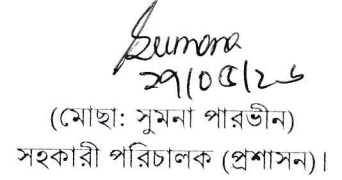 Sumona
২৭/০৫/২৬
(মোছা: সুমনা পারভীন)
সহকারী পরিচালক (প্রশাসন)।